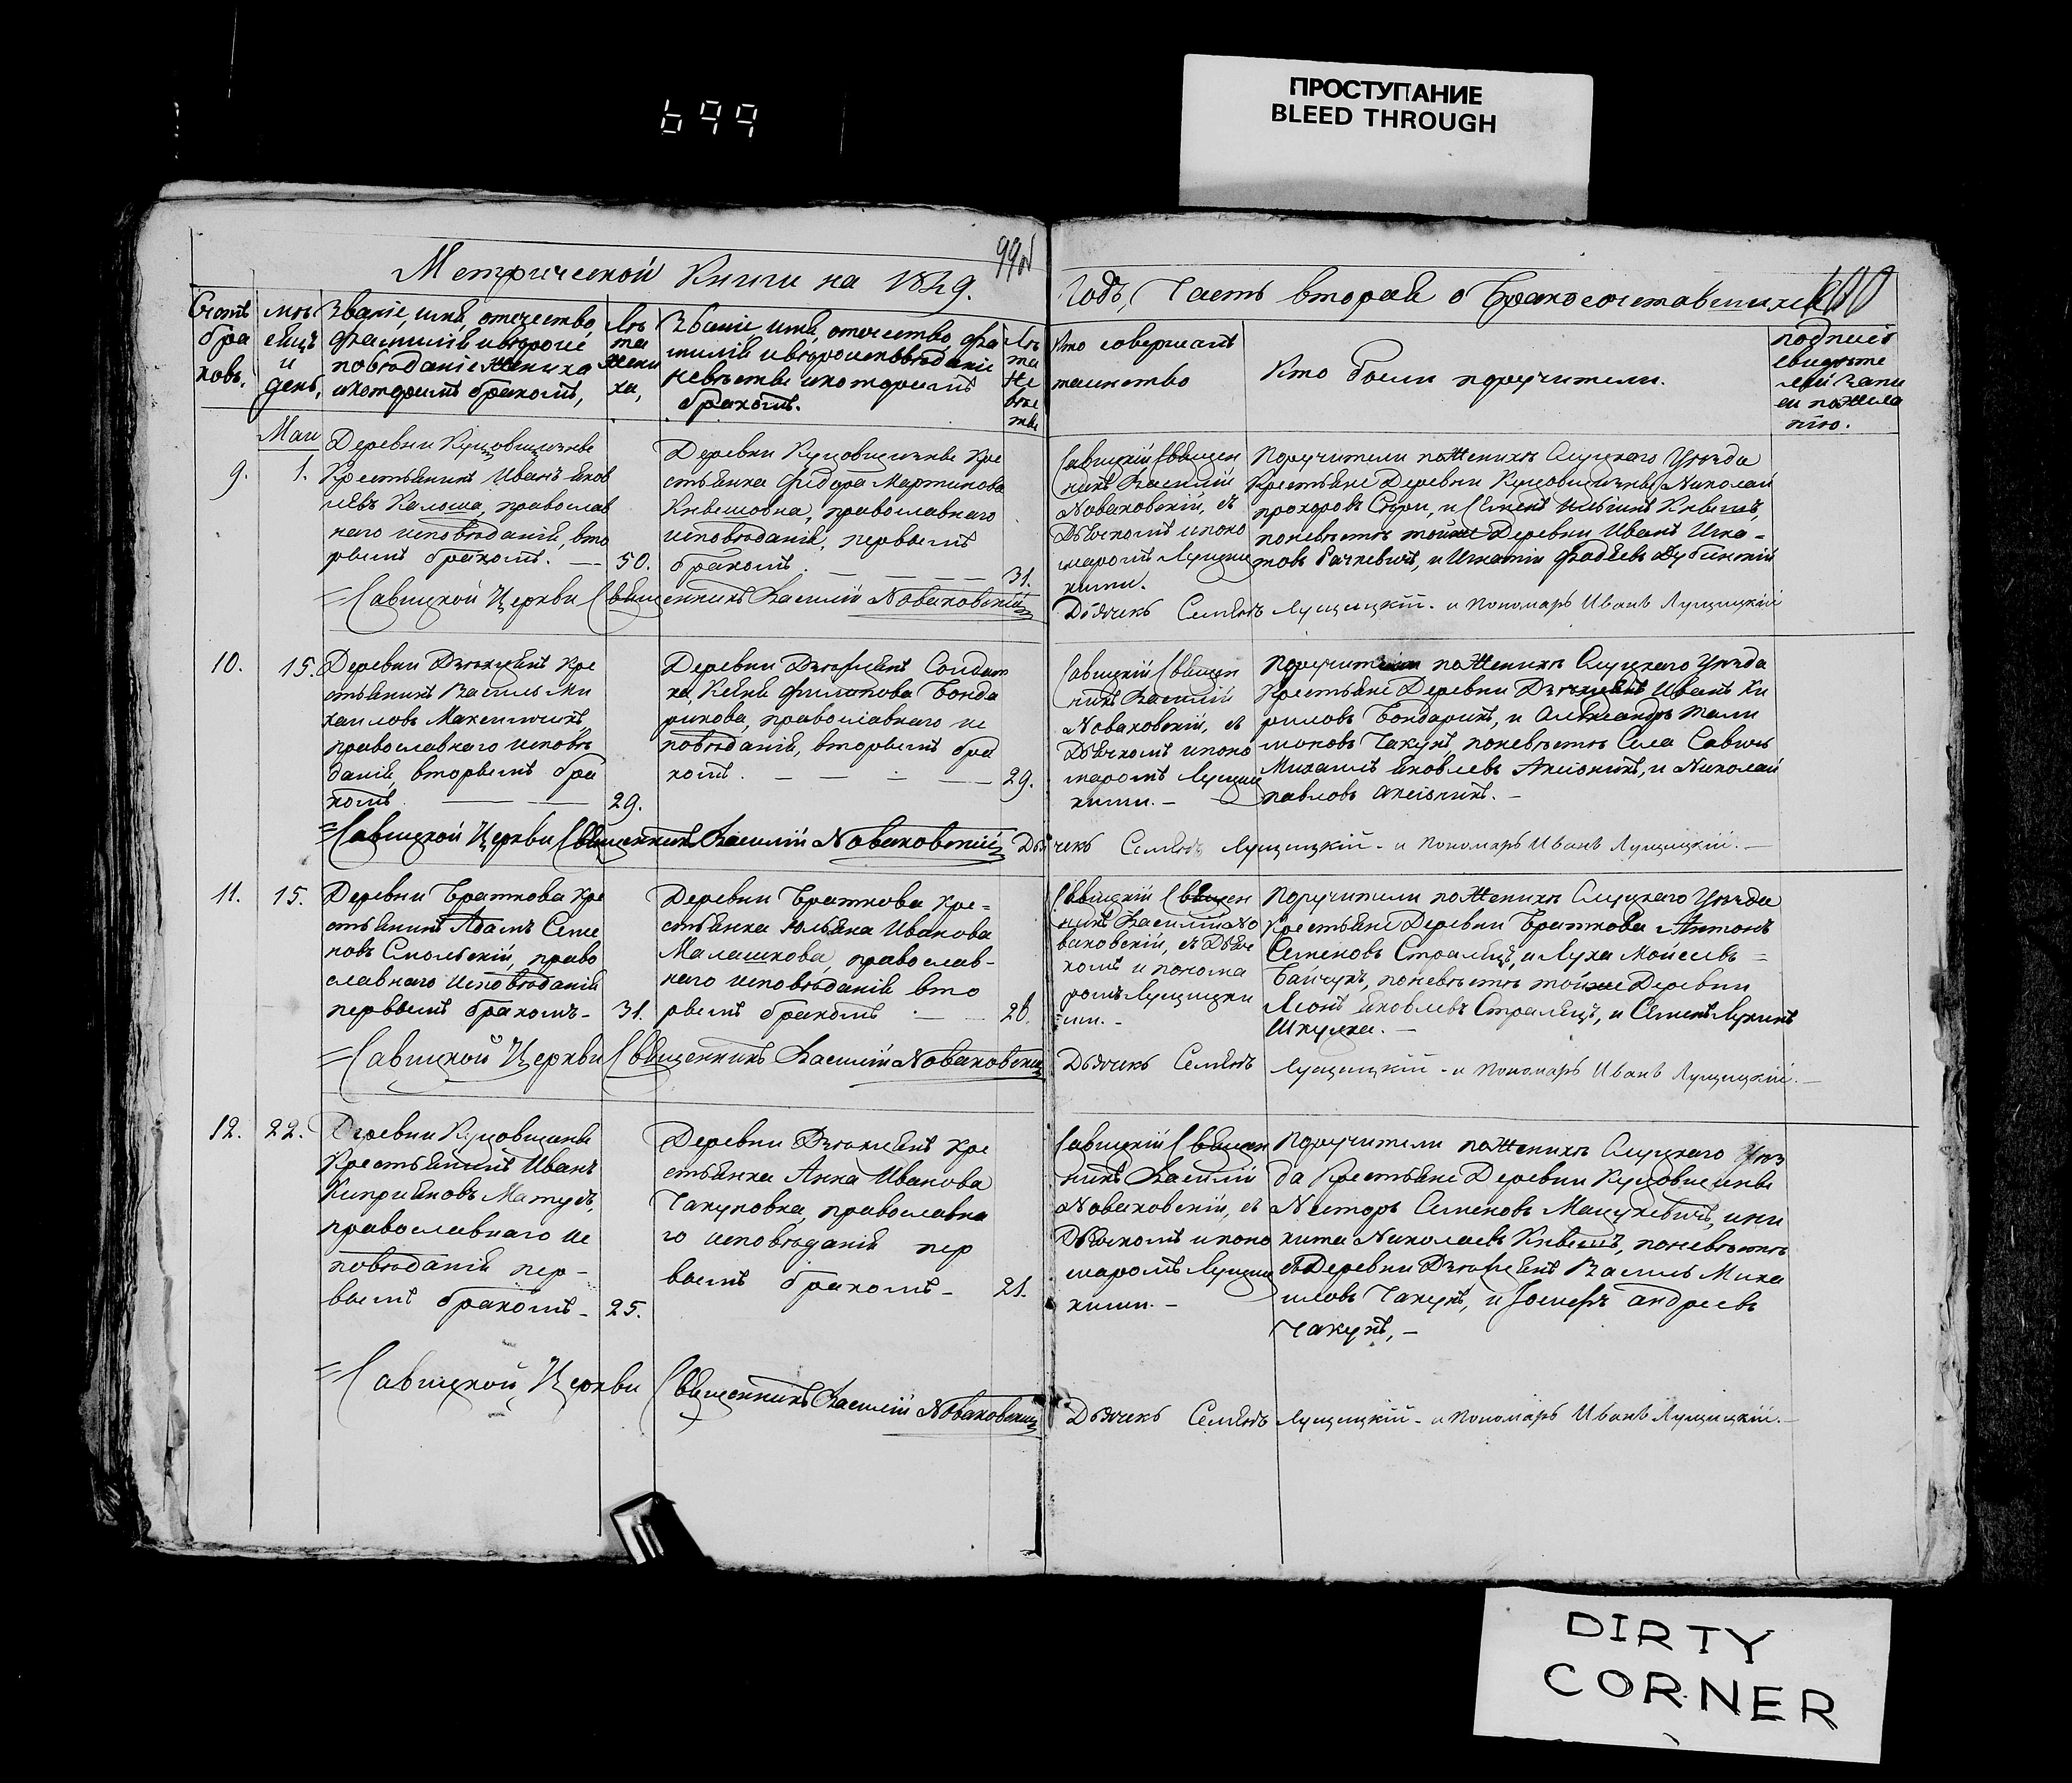 ПРОСТУПАНИЕ
BLEED THROUGH
699
99об
100
Метрической Книги на 1849.
Годъ, Часть вторая о Бракосочетавшихся
Счетъ
бра
ковъ.
мѣ
сяцъ
и
день,
Званіе, имя, отечество,
фамилія и вѣроис
повѣданіе жениха
и которымъ бракомъ,
Лѣ
та
жени
ха,
Званіе, имя, отечество, фа
милія и вѣроисповѣданіе
невѣсты и которымъ
бракомъ.
Лѣ
та
не
вѣс
ты
Кто совершалъ
таинство
Кто были поручители.
подпись
свидѣте
лей запи
си по жела
нію.
Маи
9.
1.
Деревни Куцовщины
Крестьянинъ Иванъ Яков
левъ Калоша, православ
наго исповѣданія, вто
рымъ бракомъ. —
50.
Деревни Куцовщины Кре
стьянка Федора Мартинова
Квешовна, православнаго
исповѣданія, первымъ
бракомъ.
31.
Савицкій Священ
никъ Василій
Новаковскій, съ
Дьячкомъ и поно
маромъ Лущиц
кими.
Поручители по Женихѣ Слуцкаго Уѣзда
Крестьяне Деревни Куцовщины Николай
прохоровъ, и Семенъ Ильинъ Квешъ,
по невѣстѣ тойже Деревни Иванъ Игна-
товъ Рачкевичъ, и Игнатій Фадѣевъ Дубинскій
=Савицкой Церкви Священникъ Василій Новаковскій
Дьячекъ Семіонъ Лущицкій - и пономарь Иванъ Лущицкій
10.
15.
Деревни Дѣтковичъ Кре
стьянинъ Василь Ми
хаиловъ Максимчикъ,
православнаго исповѣ
данія, вторымъ бра
комъ
29.
Солдат
ка, филипова Бонда
рикова, православнаго ис
повѣданія, вторымъ бра
комъ. —
29.
Савицкій Священ
никъ Василій
Новаковскій, съ
Дьячкомъ и поно
маромъ Лущиц
кими. -
Поручители по Женихѣ Слуцкаго Уѣзда
Крестьяне Деревни Иванъ Ки
риловъ Бондарикъ, и Александръ Фили
моновъ Чакунъ, по невѣстѣ Села Савичъ
Михаилъ Яковлевъ Аксіончикъ, и Николай
павловъ Аксіончикъ. -
=Савицкой Церкви Священникъ Василій Новаковскій
Дьячекъ Семіонъ Лущицкій - и пономарь Иванъ Лущицкій. —
11.
15.
Деревни Браткова Кре
стьянинъ Адамъ Семе
новъ Смольскій, право
славнаго исповѣданія
первымъ бракомъ-
31.
Деревни Браткова Кре=
стьянка Юльяна Иванова
Малашкова, православ-
наго исповѣданія вто
рымъ бракомъ
26.
Савицкій Священ
никъ Василій Но
ваковскій, съ Дьяч
комъ и понома
ромъ Лущицки
ми. -
Поручители по Женихѣ Слуцкаго Уѣзда
Крестьяне Деревни Браткова Антонъ
Семеновъ Стралецъ, и Лука Мойсеевъ =
Байчукъ, по невѣстѣ тойже Деревни
Леонъ Яковлевъ Стралецъ, и Семенъ Лукинъ
Шкулка. —
=Савицкой Церкви Священникъ Василій Новаковскій
Дьячекъ Семіонъ Лущицкій - и пономарь Иванъ Лущицкій. —
12.
22.
Деревни Куцовщины
Крестьянинъ Иванъ
Кипріяновъ Матусъ,
православнаго ис
повѣданія пер-
вымъ бракомъ-
25.
Кре
стьянка Анна Иванова
Чакуновна, православна
го исповѣданія пер
вымъ бракомъ-
21.
Савицкій Священ
никъ Василій
Новаковскій, съ
Дьячкомъ и поно
маромъ Лущиц
кими. —
Поручители по Женихѣ Слуцкаго Уѣз
да Крестьяне Деревни Куцовщины
Несторъ Семеновъ Мацукевичъ, и Ни
кита Николаевъ Квешъ, по невѣстѣ
Деревни Василь Миха
иловъ Чакунъ, и Іосифъ Андреевъ
Чакунъ, —
=Савицкой Церкви Священникъ Василій Новаковскій
Дьячекъ Семіонъ Лущицкій - и пономарь Иванъ Лущицкій. —
DIRTY
CORNER